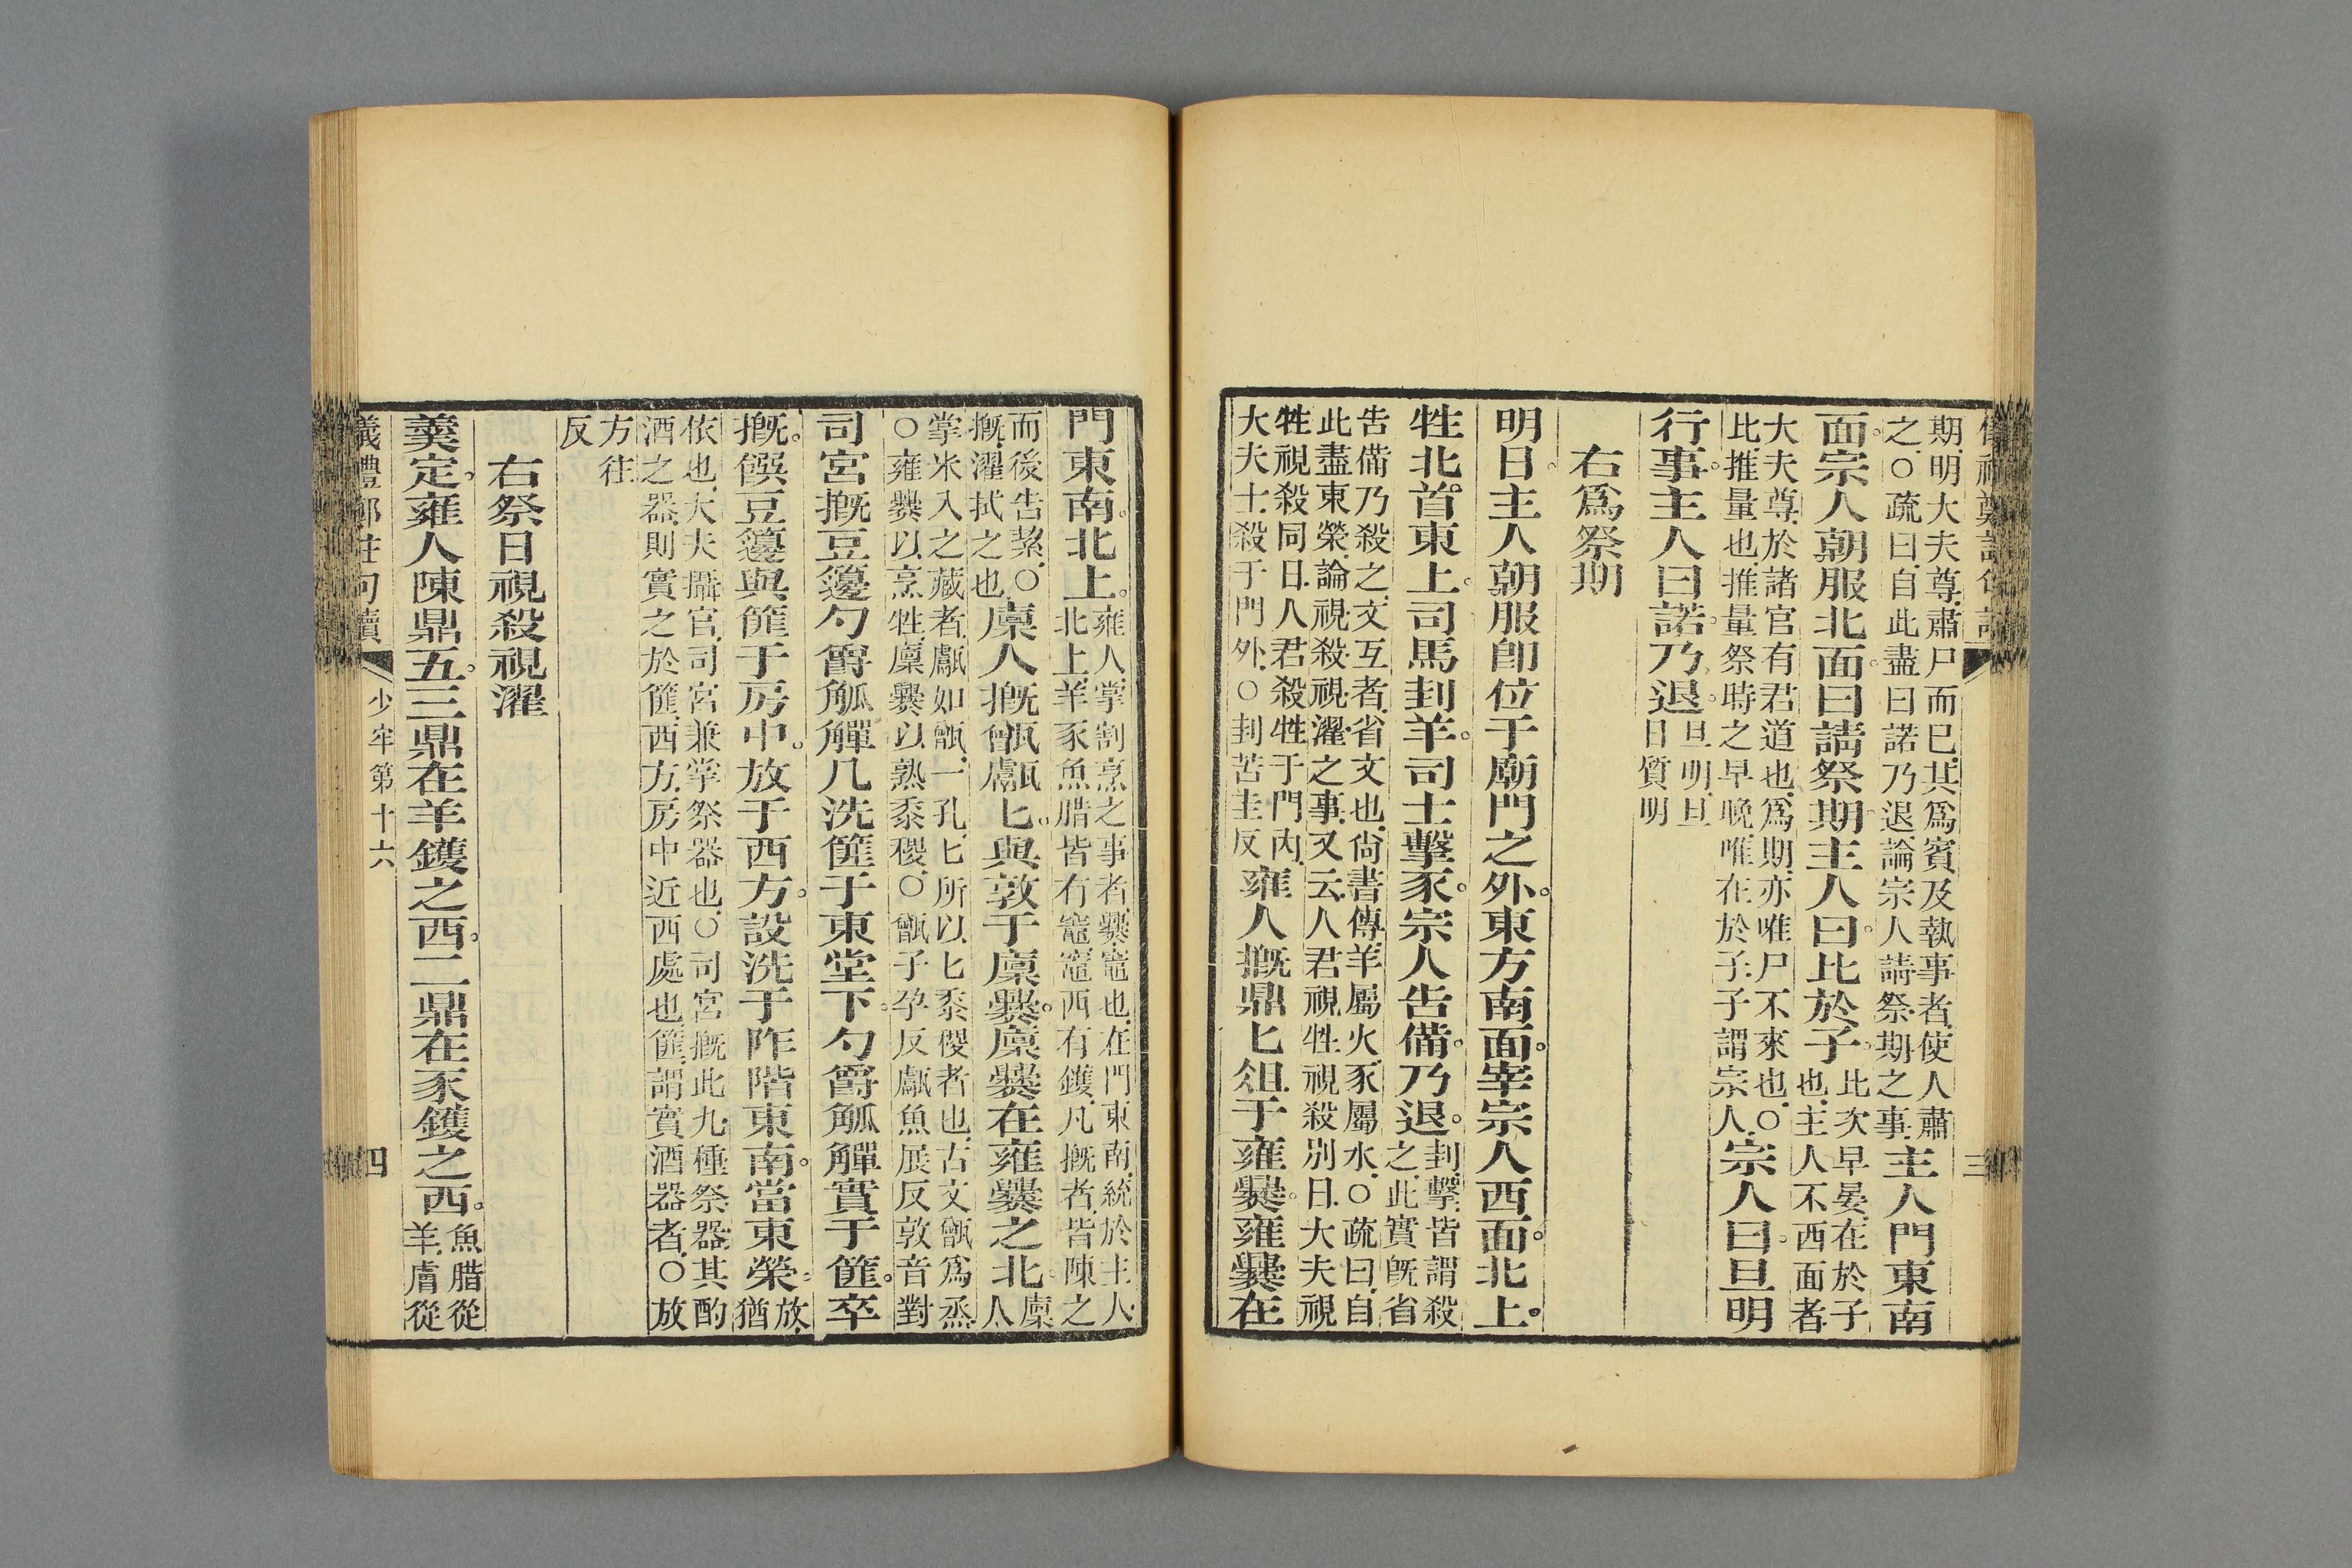 儀禮鄭註句讀 三
期明大夫尊肅尸而已其爲賓及執事者使人肅
之○疏曰自此盡曰諾乃退論宗人請祭期之事主人門東南
面宗人朝服北面曰請祭期主人曰比於子比次早晏在於子也主人不西面者
大夫尊於諸官有君道也爲期亦唯尸不來也○
比推量也推量祭時之早晚唯在於子子謂宗人宗人曰旦明
行事主人曰諾乃退旦明旦日質明
右爲祭期
明日主人朝服卽位于廟門之外東方南面宰宗人西面北上
牲北首東上司馬刲羊司士擊豕宗人告備乃退刲擊皆謂殺之此實旣省
告備乃殺之文互者省文也尙書傳羊屬火豕屬水○疏曰自
此盡東榮論視殺視濯之事又云人君視牲視殺別日大夫視
牲視殺同日人君殺牲于門內
大夫士殺于門外○刲苦圭反雍人摡鼎匕俎于雍爨雍爨在
門東南北上雍人掌割烹之事者爨竈也在門東南統於主人
北上羊豕魚腊皆有竈竈西有鑊凡摡者皆陳之
而後告絜○
摡濯拭之也廩人摡甑甗匕與敦于廩爨廩爨在雍爨之北廩人
掌米入之藏者甗如甑一孔匕所以匕黍稷者也古文甑爲烝
○雍爨以烹牲廩爨以熟黍稷○甑子孕反甗魚展反敦音對
司宮摡豆籩勺爵觚觶几洗篚于東堂下勺爵觚觶實于篚卒
摡饌豆籩與篚于房中放于西方設洗于阼階東南當東榮放猶
依也大夫攝官司宮兼掌祭器也○司宮摡此九種祭器其酌
酒之器則實之於篚西方房中近西處也篚謂實酒器者○放
方往
反
右祭日視殺視濯
羹定雍人陳鼎五三鼎在羊鑊之西二鼎在豕鑊之西魚腊從
羊膚從
儀禮鄭註句讀 少牢第十六 四